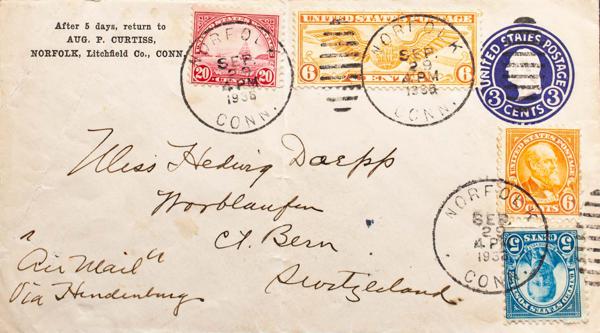 After 5 days, return to
AUG. P. CURTISS,
NORFOLK, Litchfield Co., CONN.
20 CENTS 20
UNITED STATES POSTAGE
6 CENTS 6
UNITED STATES POSTAGE
3 CENTS 3
NORFOLK
SEP
29
4 PM
1936
CONN.
NORFOLK
SEP
29
4 PM
1936
CONN.
Miss Hedwig Doepp
Worblaufen
Ct. Bern
Switzerland
"Air Mail"
Via Hindenburg
UNITED STATES POSTAGE
6 CENTS 6
NORFOLK
SEP
29
4 PM
1936
CONN.
UNITED STATES POSTAGE
5 CENTS 5